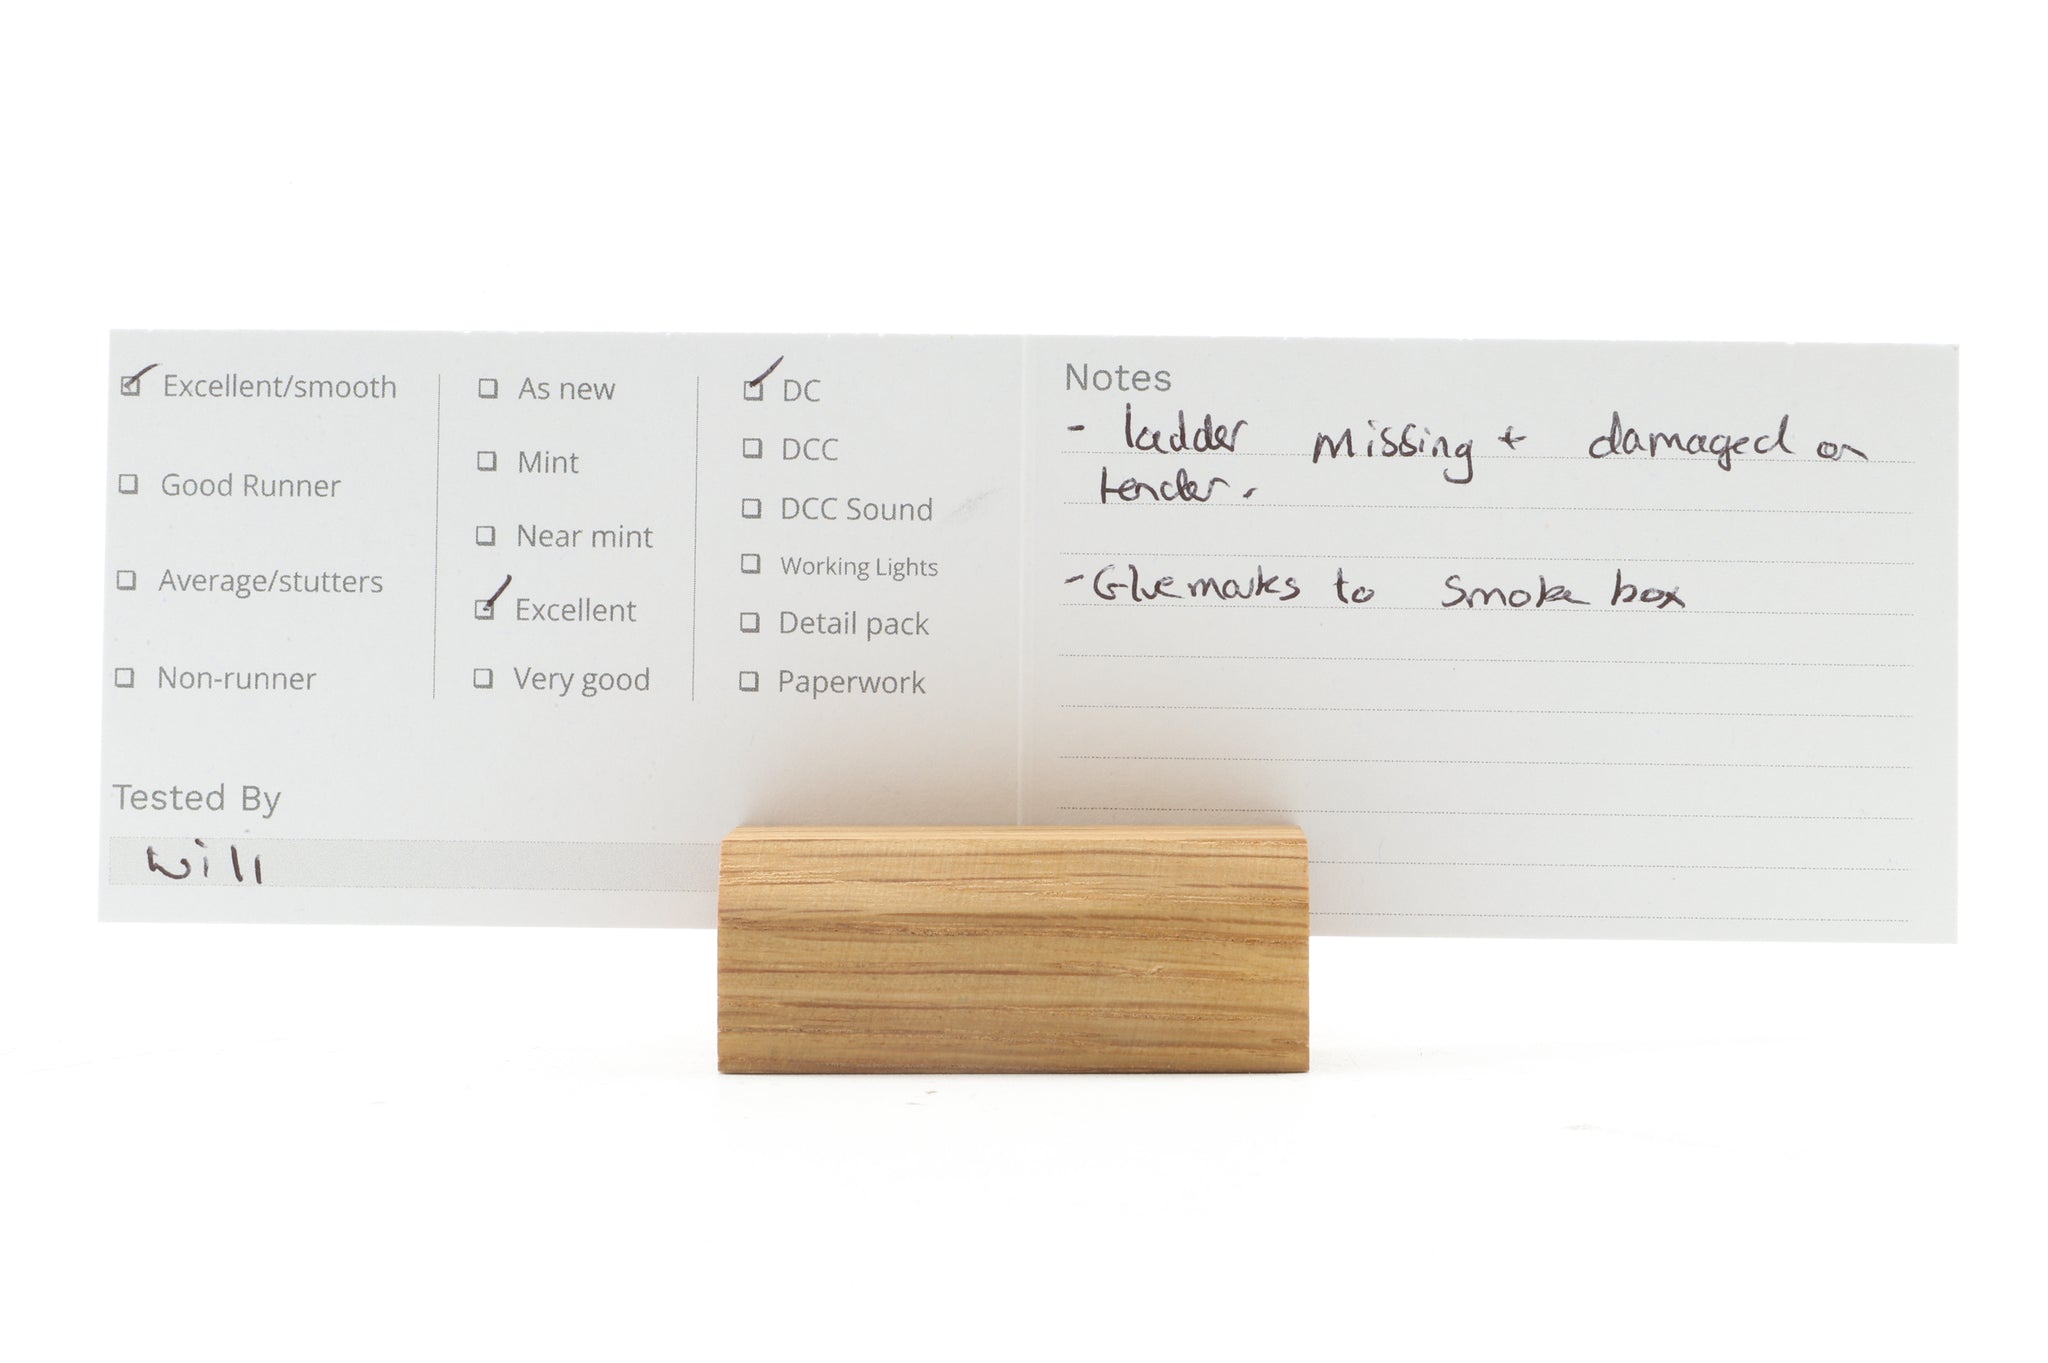 Excellent/smooth
Good Runner
Average/stutters
Non-runner
As new
Mint
Near mint
Excellent
Very good
DC
DCC
DCC Sound
Working Lights
Detail pack
Paperwork
Tested By
Will
Notes
- ladder missing + damaged on
tender.
- Glue marks to smoke box